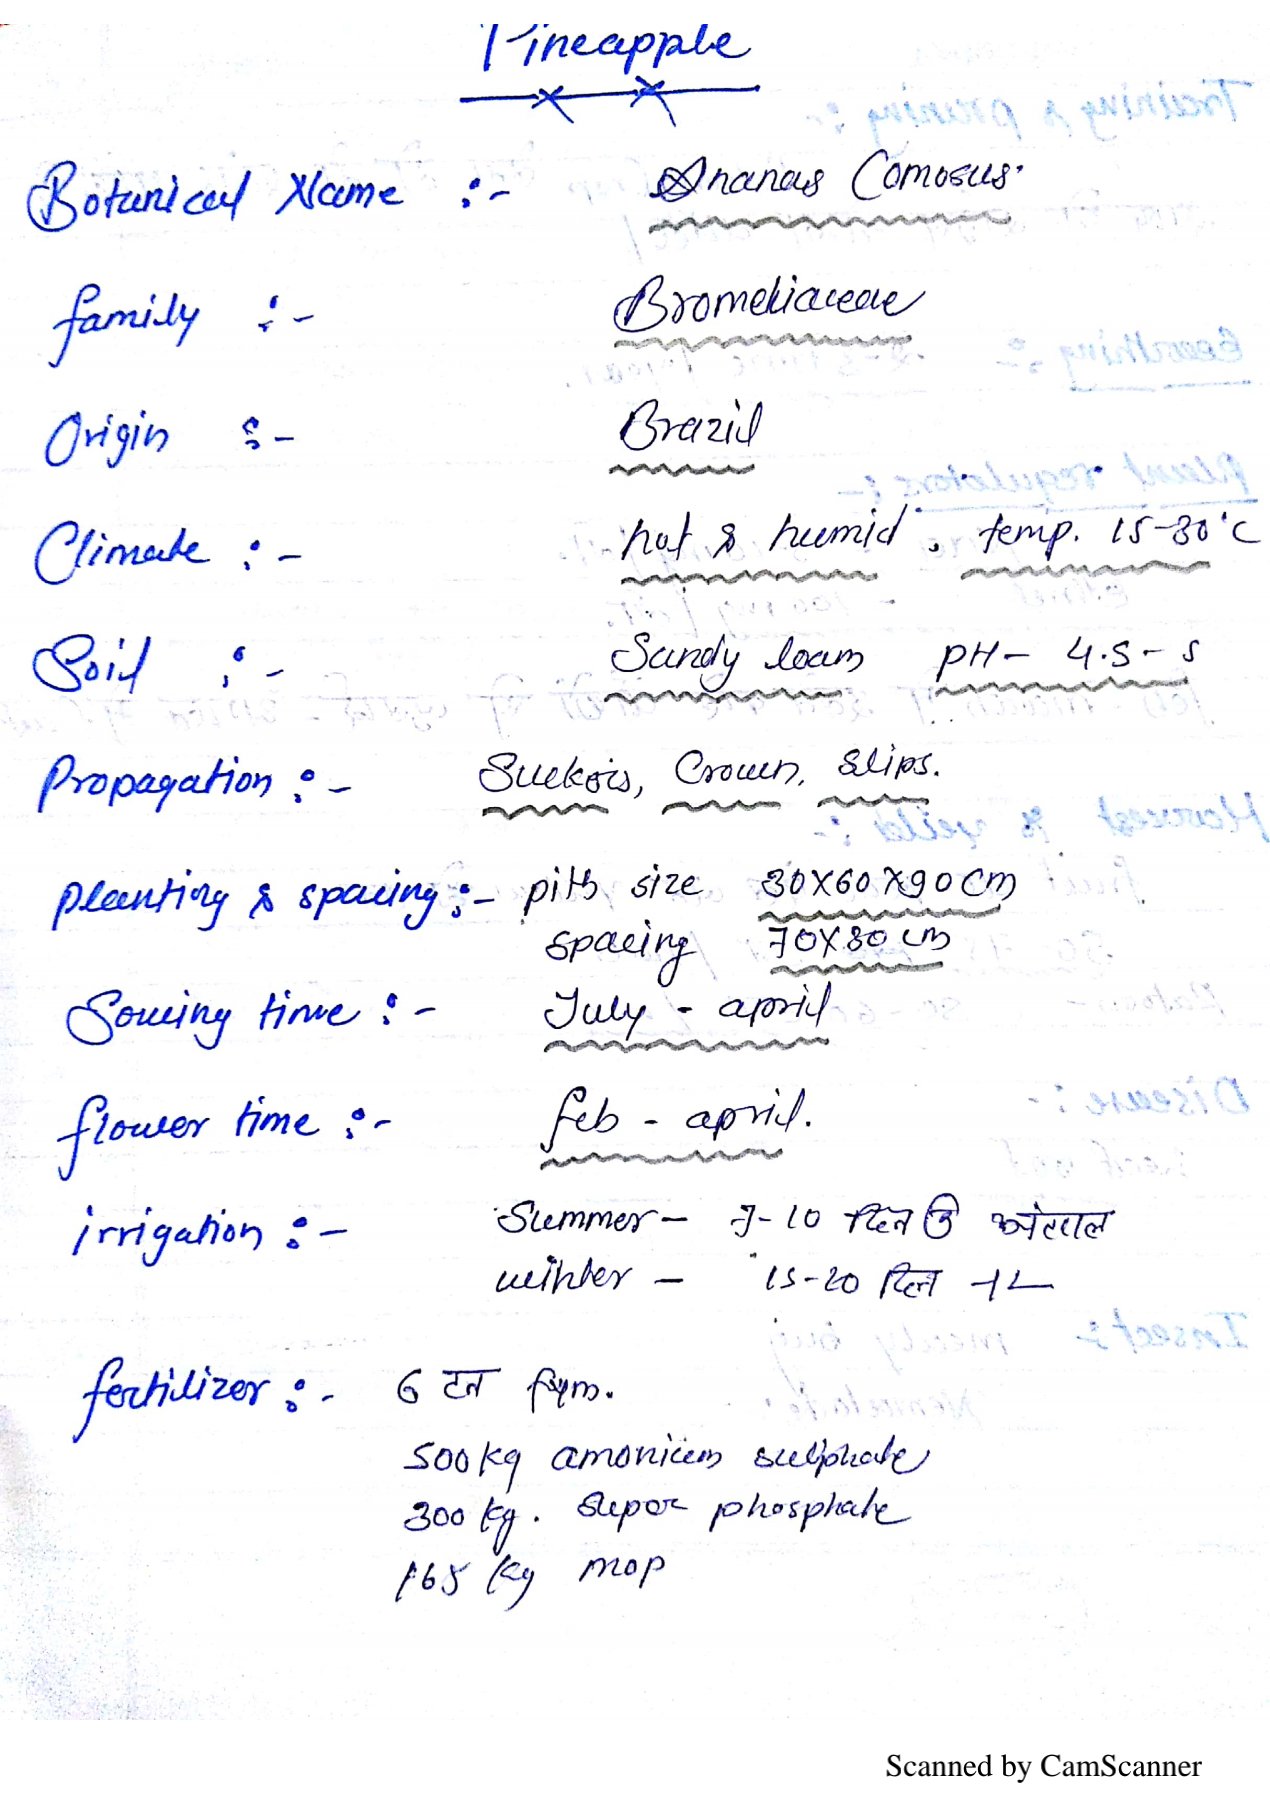 Pineapple
Botanical Name :- Ananas Comosus.
family :- Bromeliaceae
Origin :- Brazil
Climate :- hot & humid, temp. 15-30°C
Soil :- Sandy loam pH- 4.5-5
Propagation :- Suckers, Crown, Slips.
planting & spacing :- pits size 30X60X90cm
spacing 70X80cm
Sowing time :- July - april
flower time :- feb - april.
irrigation :- Summer - 7-10 दिन अंतराल
winter - 15-20 दिन
fertilizer :- 6 टन fym.
500kg amonium sulphate
300 kg. super phosphate
165 kg mop
Scanned by CamScanner